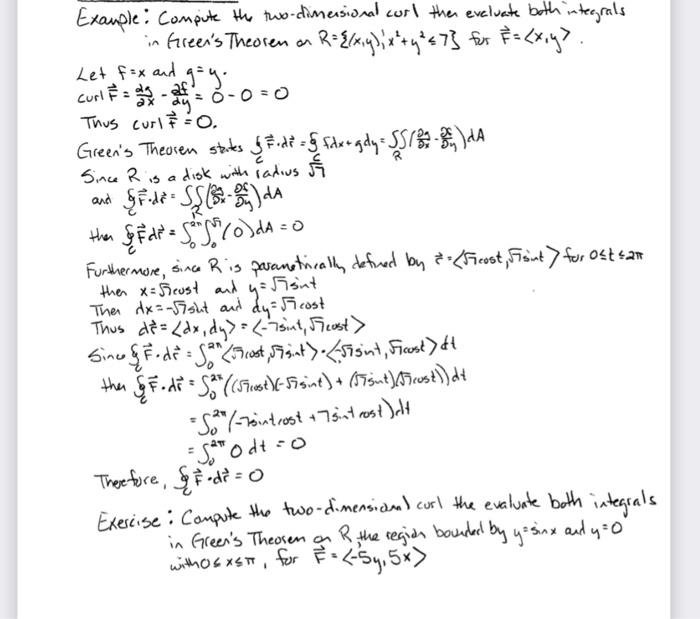 Example: Compute the two-dimensional curl then evaluate both integrals
in Green's Theorem on R={(x,y);x²+y²≤7} for F⃗=<x,y>.
Let f=x and g=y.
curl F⃗ = ∂g/∂x - ∂f/∂y = 0-0=0
Thus curl F⃗ =0.
Green's Theorem states ∮_C F⃗·dr⃗ = ∮_C fdx+gdy = ∬_R (∂g/∂x - ∂f/∂y)dA
Since R is a disk with radius √7
and ∮_C F⃗·dr⃗ = ∬_R (∂g/∂x - ∂f/∂y)dA
then ∮_C F⃗ dr⃗ = ∫₀^2π ∫₀^√7 (0)dA = 0
Furthermore, since R is parametrically defined by r⃗=<√7cost,√7sint> for 0≤t≤2π
then x=√7cost and y=√7sint
Then dx=-√7sint and dy=√7cost
Thus dr⃗=<dx,dy>=<-7sint,√7cost>
Since ∮_C F⃗·dr⃗ = ∫₀^2π <√7cost,√7sint>·<-√7sint,√7cost>dt
then ∮_C F⃗·dr⃗ = ∫₀^2π ((√7cost)(-√7sint)+(√7sint)(√7cost))dt
= ∫₀^2π (-7sintcost+7sintcost)dt
= ∫₀^2π 0dt=0
Therefore, ∮_C F⃗·dr⃗=0
Exercise: Compute the two-dimensional curl the evaluate both integrals
in Green's Theorem on R, the region bounded by y=sinx and y=0
with 0≤x≤π, for F⃗=<-5y,5x>